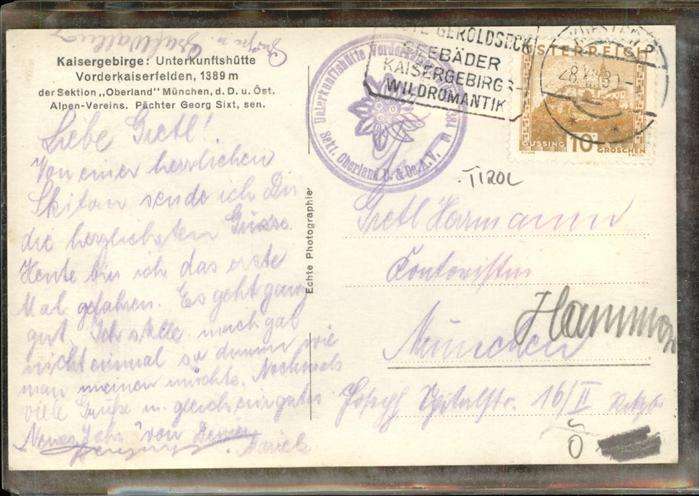 Kaisergebirge: Unterkunftshütte
Vorderkaiserfelden, 1389 m
der Sektion „Oberland" München, d. D. u. Öst.
Alpen-Vereins. Pächter Georg Sixt, sen.
Liebe Gretl!
Von einer herrlichen
Skitour sende ich Dir
die herzlichsten Grüsse.
Heute bin ich das erste
Mal gefahren. Es geht ganz
gut. Ich stelle mich gar
nicht einmal so dumm wie
man meinen möchte. Nochmals
viele Grüße u. gleich ein gutes
Neues Jahr" von Deiner
Echte Photographie
Unterkunftshütte Vorderkaiserfelden
Sekt. Oberland D. & Oe. A. V.
GEROLDSECK
SEEBÄDER
KAISERGEBIRGS-
WILDROMANTIK
KUFSTEIN 2
ÖSTERREICH
GÜSSING 10 GROSCHEN
TIROL
Gretl Hermann
Kontoristin
München
Hammer
Joseph Spitalstr. 16/II
Ö